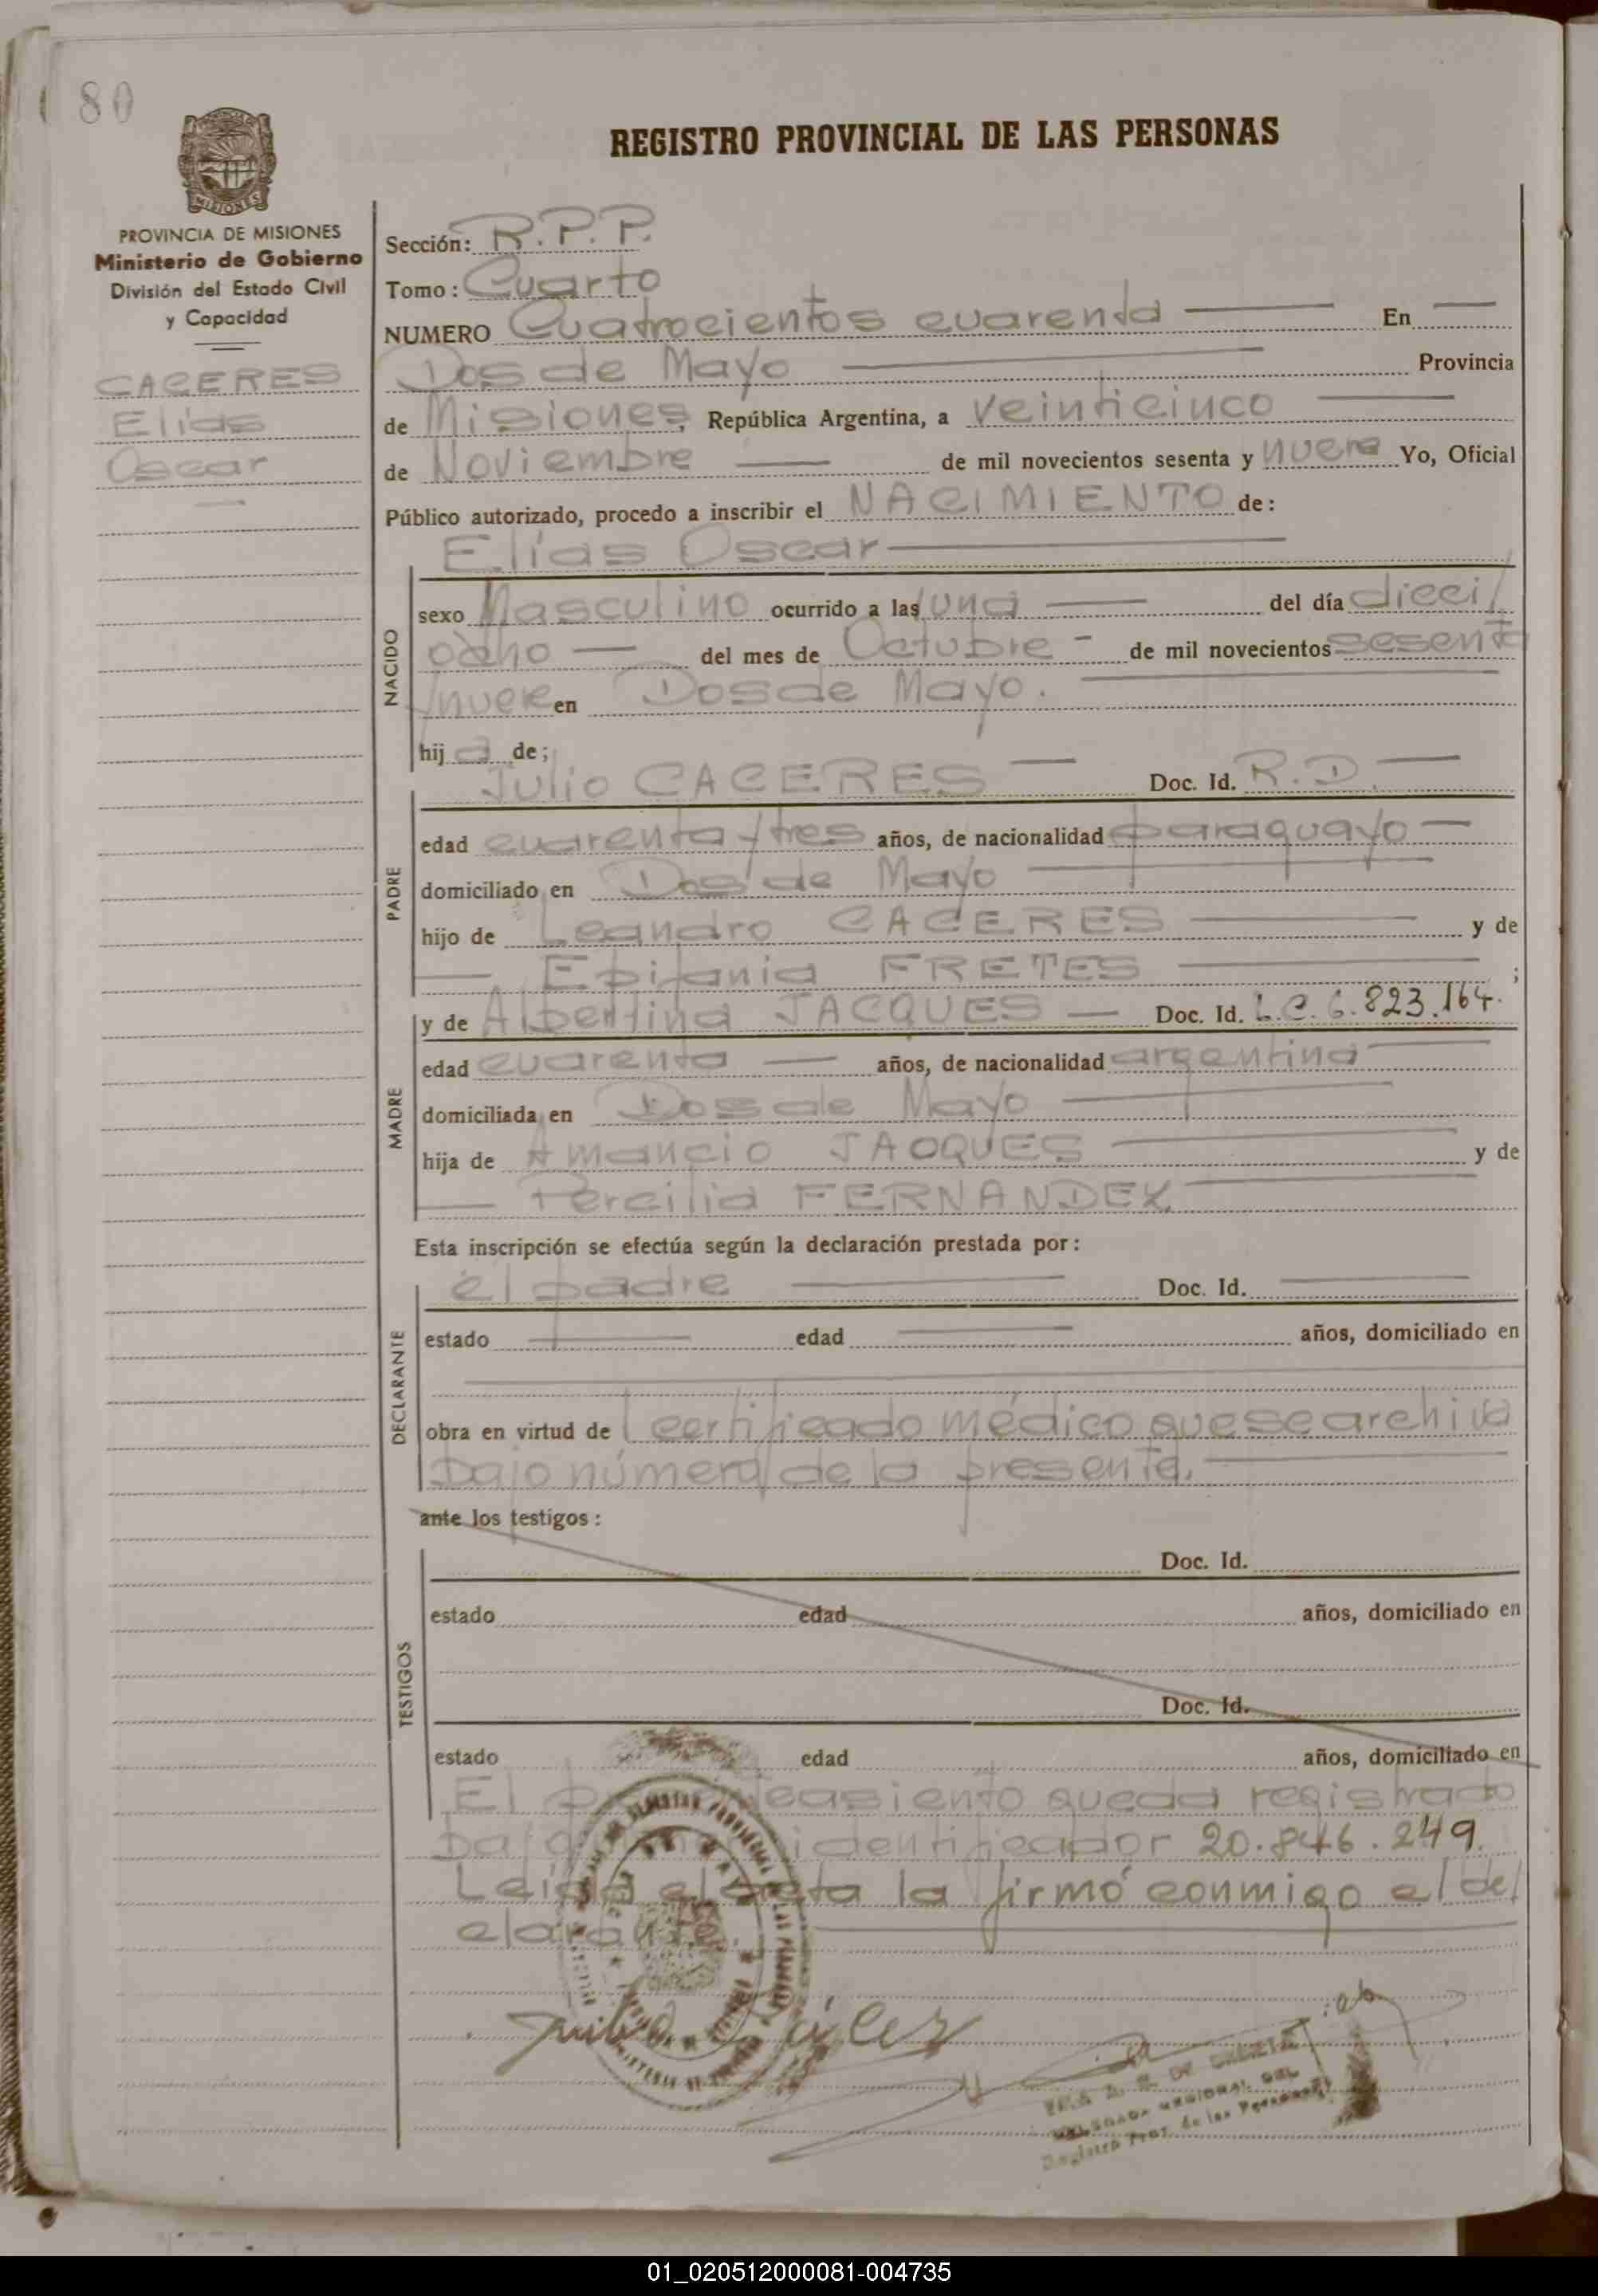 80
MISIONES
PROVINCIA DE MISIONES
Ministerio de Gobierno
División del Estado Civil
y Capacidad
CACERES
Elías
Oscar
REGISTRO PROVINCIAL DE LAS PERSONAS
Sección: R.P.P.
Tomo: Cuarto
NUMERO Cuatrocientos cuarenta En
Dos de Mayo Provincia
de Misiones, República Argentina, a veinticinco
de Noviembre de mil novecientos sesenta y nueve Yo, Oficial
Público autorizado, procedo a inscribir el NACIMIENTO de:
Elías Oscar
NACIDO
sexo Masculino ocurrido a las una del día dieci/
ocho del mes de Octubre de mil novecientos sesenta
/nueve en Dos de Mayo.
hij o de;
Julio CACERES Doc. Id. R.D.
PADRE
edad cuarenta y tres años, de nacionalidad paraguayo
domiciliado en Dos de Mayo
hijo de Leandro CACERES y de
Epifania FRETES ;
y de Albertina JACQUES Doc. Id. L.C. 6.823.164.
MADRE
edad cuarenta años, de nacionalidad argentina
domiciliada en Dos de Mayo
hija de Amancio JACQUES y de
Percilia FERNANDEZ
Esta inscripción se efectúa según la declaración prestada por:
el padre Doc. Id.
DECLARANTE
estado edad años, domiciliado en
obra en virtud de certificado médico que se archiva
bajo número de la presente.
ante los testigos:
TESTIGOS
Doc. Id.
estado edad años, domiciliado en
Doc. Id.
estado edad años, domiciliado en
El asiento queda registrado
bajo identificador 20.846.249.
Leída el acta la firmó conmigo el de/
clarante.
Julio Cáceres
DELEGADA REGIONAL DEL
Registro Prov. de las Personas
01_020512000081-004735